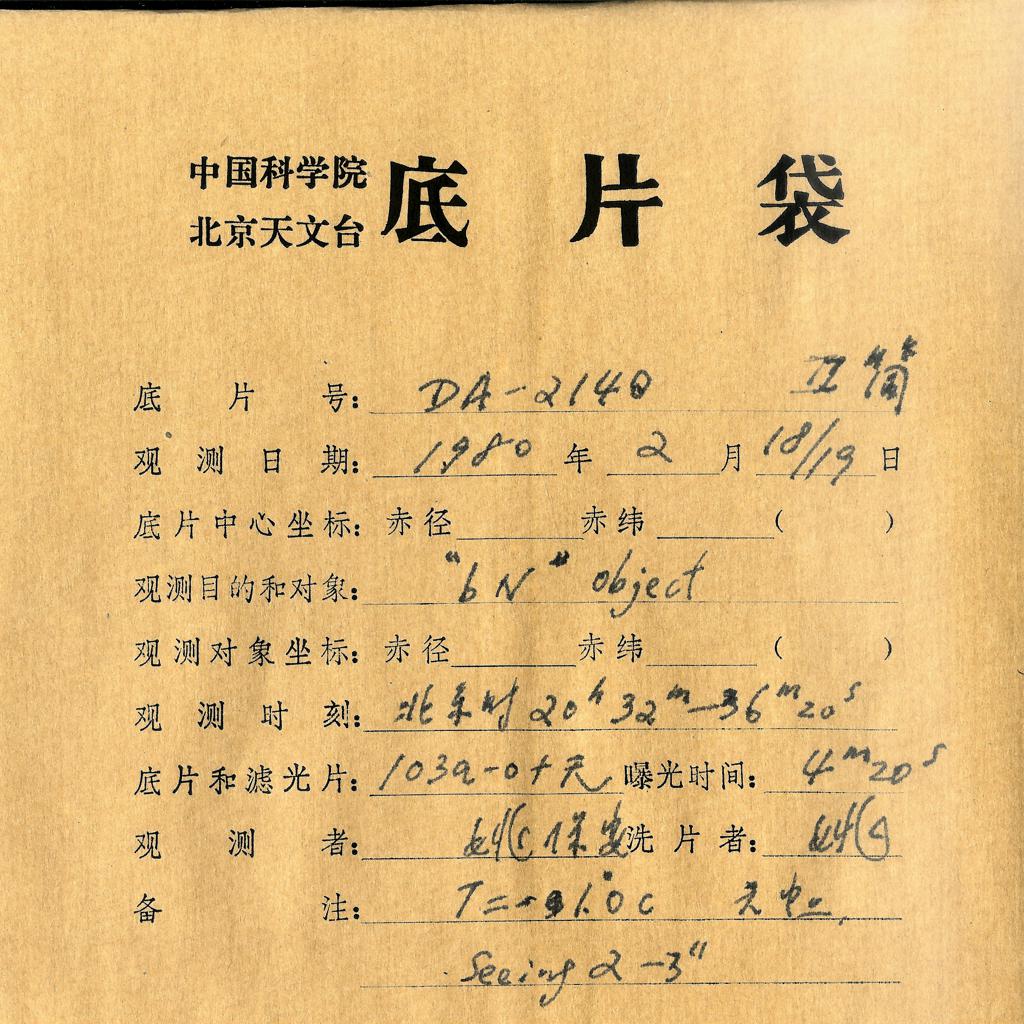 中国科学院
北京天文台
底片袋
底片号: DA-2140 II 筒
观测日期: 1980 年 2 月 18/19 日
底片中心坐标: 赤径 赤纬 ( )
观测目的和对象: "bN" object
观测对象坐标: 赤径 赤纬 ( )
观测时刻: 北京时 20h 32m-36m20s
底片和滤光片: 103a-0+无 曝光时间: 4m20s
观测者: 保 洗片者:
备注: T= 1.°0C
Seeing 2-3"